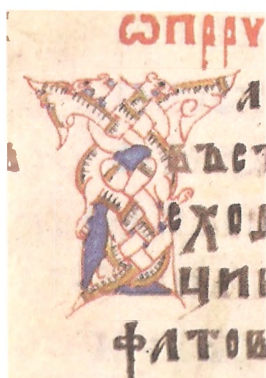 ѡпрру
л
въст
еход
ции
флтов